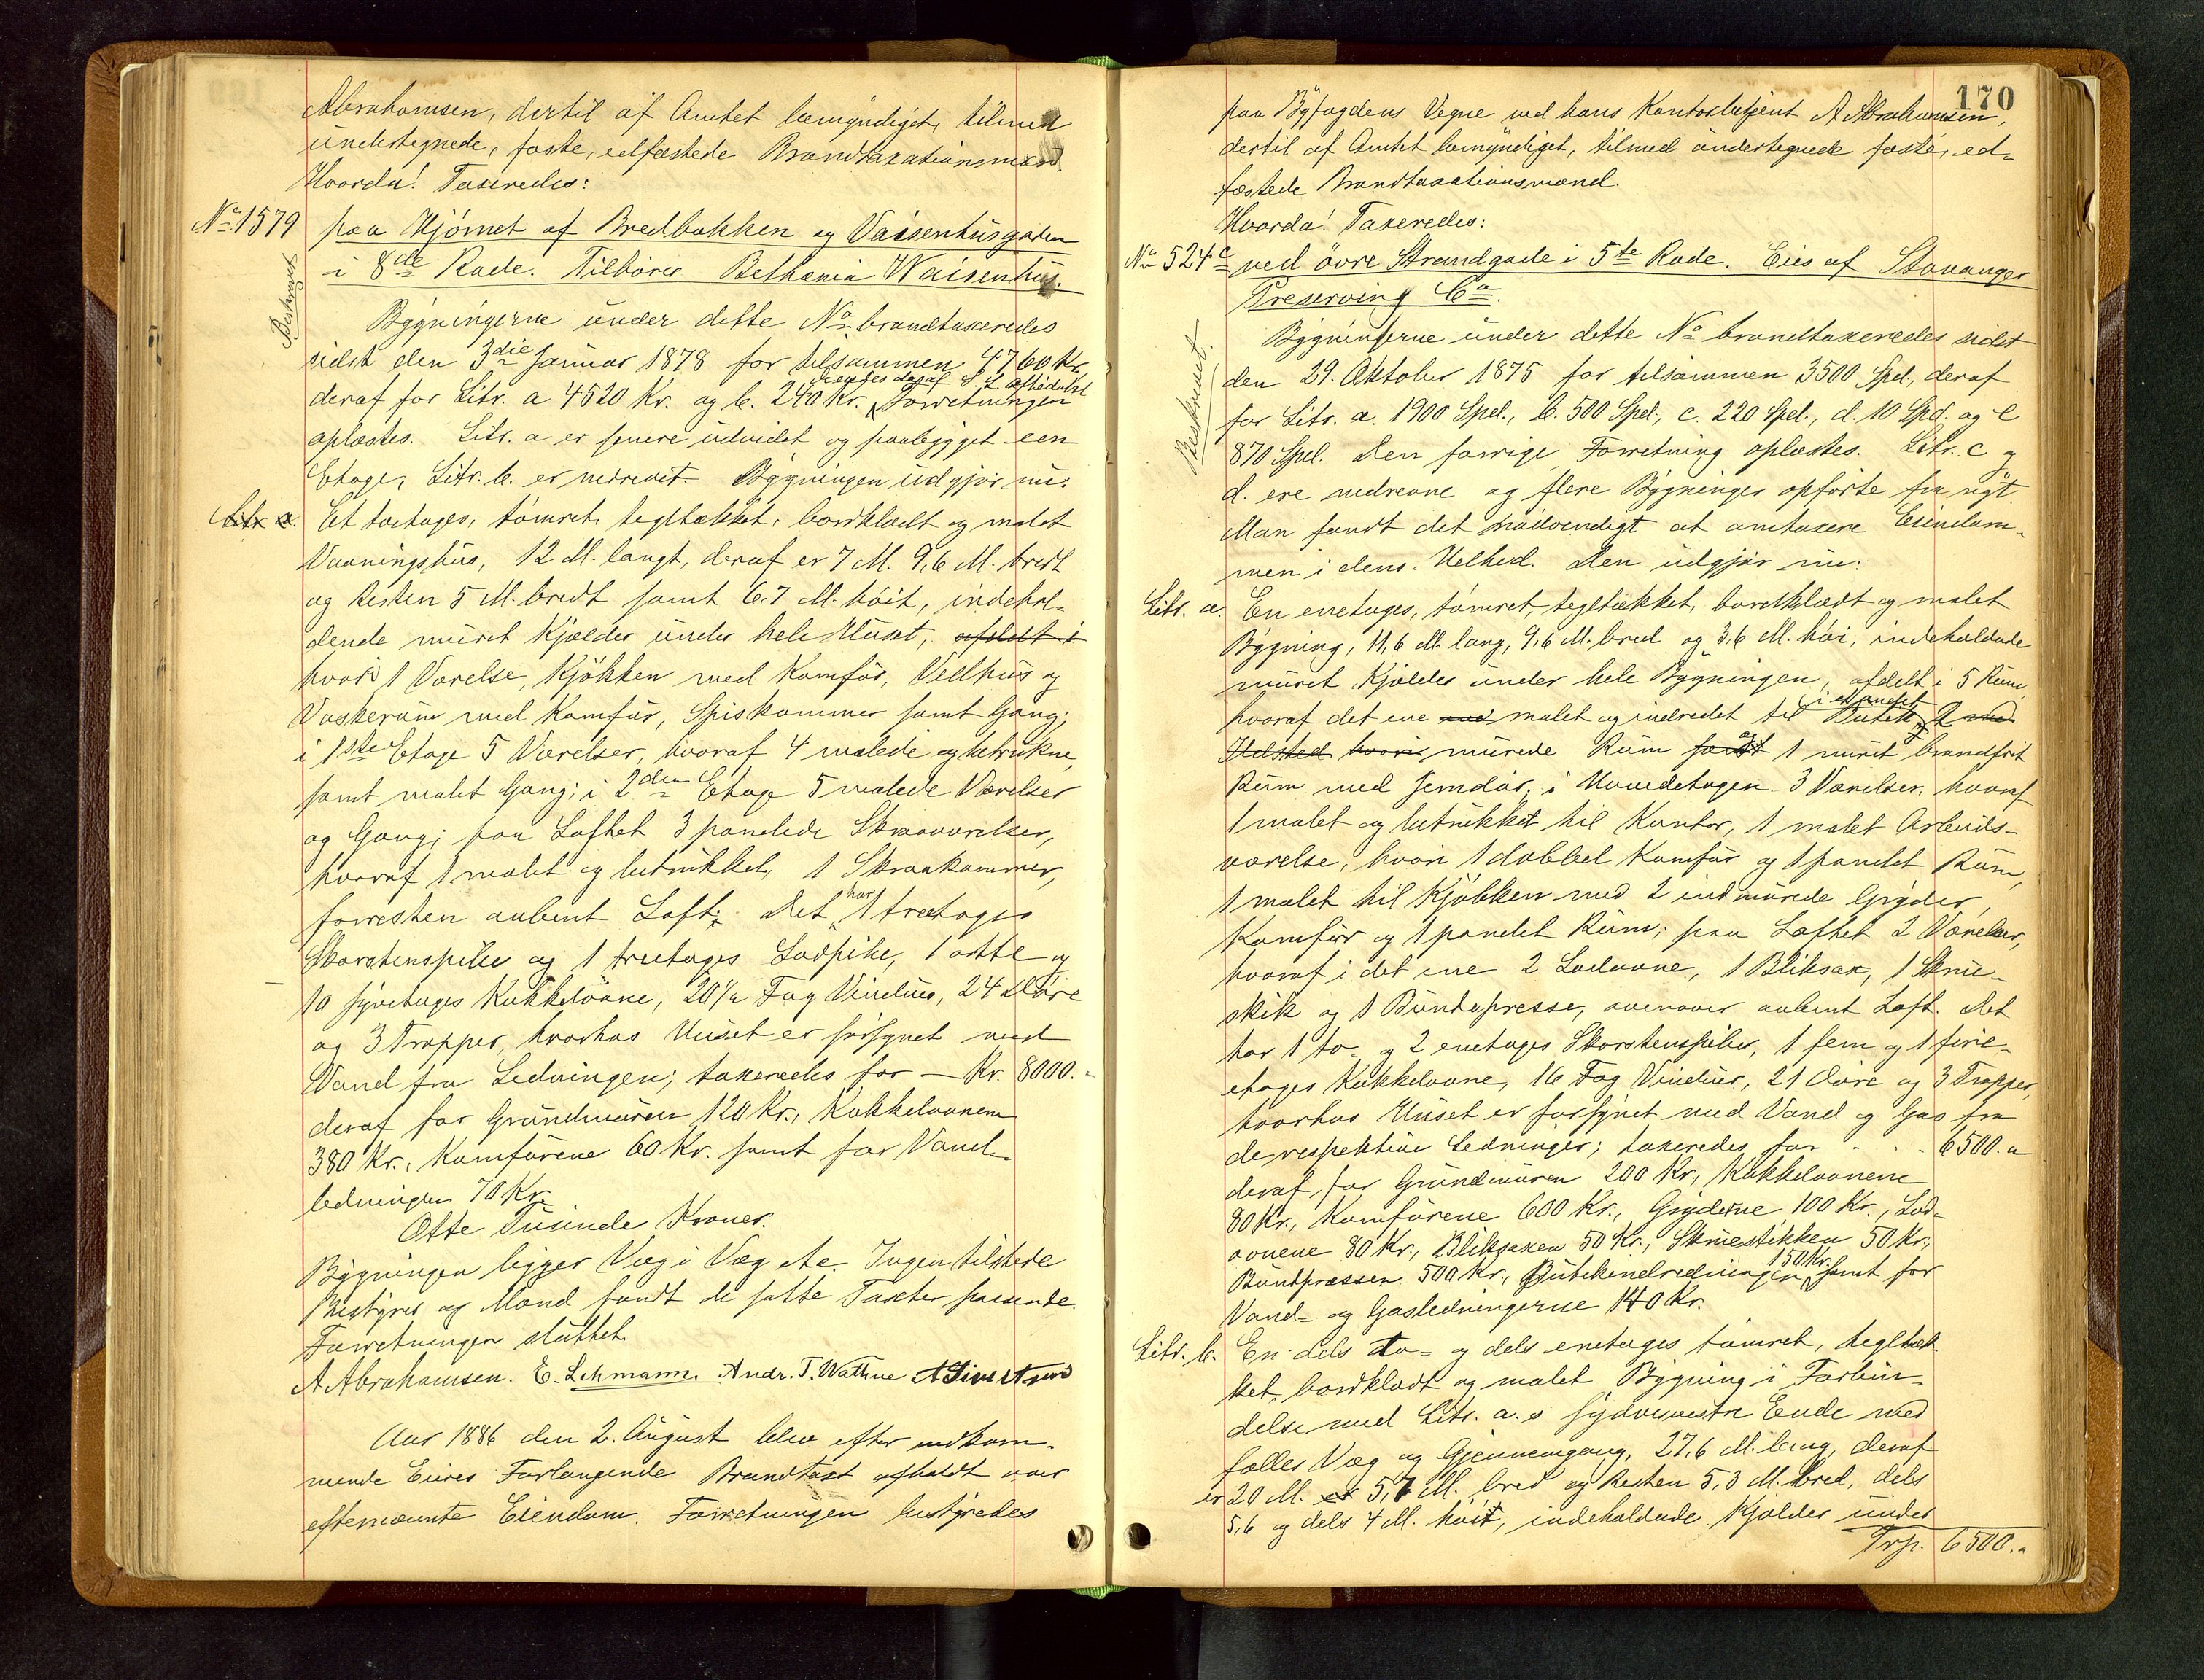 Abrahamsen, dertil af Amtet bemyndiget, tilmed
undertegnede, faste, edfæstede Brandtaxationsmænd.
Hvorda! Taxeredes:
No 1579 paa Hjørnet af Bredbakken og Vaisenhusgaden
i 8de Rode. Tilhører Bethania Waisenhus.
Beskrevet
Bygningerne under dette No brandtaxeredes
sidst den 3die Januar 1878 for tilsammen 4760 Kr,
deraf for Litr. a 4520 Kr. og b. 240 Kr. Forretningen
oplæstes. Litr. a er senere udvidet og paabygget een
Etage, Litr. b. er nedrevet. Bygningen udgjør nu:
Litr a. Et toetages, tømret, tegltækket, bordklædt og malet
Vaaningshus, 12 M. langt, deraf er 7 M. 9,6 M. bredt
og Resten 5 M. bredt samt 6,7 M. høit, indehol-
dende muret Kjælder under hele Huset, afdelt i
hvori 1 Værelse, Kjøkken med Komfur, Vedhus og
Vaskerum med Komfur, Spiskammer samt Gang;
i 1ste Etage 5 Værelser, hvoraf 4 malede og betrukne,
samt malet Gang; i 2den Etage 5 malede Værelser
og Gang; paa Loftet 3 panelede Skraaværelser,
hvoraf 1 malet og betrukket, 1 Skraakammer,
forresten aabent Loft. Det har 1 treetages
Skorstenspibe og 1 treetages Lodpibe, 1 otte og
10 syvetages Kakkelovne, 20½ Fag Vinduer, 24 Døre
og 3 Trapper, hvorhos Huset er forsynet med
Vand fra Ledningen; taxeredes for — Kr. 8000.-
deraf for Grundmuren 120 Kr., Kakkelovnene
380 Kr., Komfurene 60 Kr. samt for Vand-
ledningen 70 Kr.
Otte Tusinde Kroner.
Bygningen ligger Væg i Væg etc. Ingen tilstede
Bestyrer og Mænd fandt de satte Taxter passende.
Forretningen sluttet.
A Abrahamsen. E. Lehmann. Andr. T. Wathne
Aar 1886 den 2. August blev efter indkom-
mende Eiers Forlangende Brandtaxt afholdt over
eftermeldte Eiendom. Forretningen bestyredes
170
paa Byfogdens Vegne ved hans Kontorbetjent A Abrahamsen,
dertil af Amtet bemyndiget, tilmed undertegnede faste, ed-
fæstede Brandtaxationsmænd.
Hvorda! Taxeredes:
No 524c ved øvre Strandgade i 5te Rode. Eies af Stavanger
Preserving Co.
Beskrevet.
Bygningerne under dette No brandtaxeredes sidst
den 29. Oktober 1875 for tilsammen 3500 Spd., deraf
for Litr. a. 1900 Spd., b. 500 Spd., c. 220 Spd., d. 10 Spd. og e
870 Spd. Den forrige Forretning oplæstes. Litr. c og
d. ere nedrevne og flere Bygninger opførte fra nyt.
Man fandt det nødvendigt at omtaxere Eiendom-
men i dens Helhed. Den udgjør nu:
Litr. a. En enetages, tømret, tegltækket, bordklædt og malet
Bygning, 11,6 M. lang, 9,6 M. bred og 3,6 M. høi, indeholdende
muret Kjælder under hele Bygningen, afdelt i 5 Rum,
hvoraf det ene malet og indredet til Butik, i et andet 2
Ildsted hvori murede Rum samt og 1 muret brandfrit
Rum med Jerndør; i Hovedetagen 3 Værelser, hvoraf
1 malet og betrukket til Kontor, 1 malet Arbeids-
værelse, hvori 1 dobbel Komfur og 1 panelet Rum,
1 malet til Kjøkken med 2 indmurede Gryder,
Komfur og 1 panelet Rum; paa Loftet 2 Værelser,
hvoraf i det ene 2 Lodovne, 1 Bliksax, 1 Skrue-
stik og 1 Bundepresse, ovenover aabent Loft. Det
har 1 to- og 2 enetages Skorstenspiber, 1 fem og 1 fire-
etages Kakkelovne, 16 Fag Vinduer, 21 Døre og 3 Trapper,
hvorhos Huset er forsynet med Vand og Gas fra
de respektive Ledninger; taxeredes for . . . 6500.-
deraf for Grundmuren 200 Kr., Kakkelovnene
80 Kr., Komfurene 600 Kr., Gryderne 100 Kr., Lod-
ovnene 80 Kr., Bliksaxen 50 Kr., Skruestikken 50 Kr.,
Bundpressen 500 Kr., Butikindredningen 150 Kr. samt for
Vand- og Gasledningerne 140 Kr.
Litr. b. En dels to- og dels enetages tømret, tegltæk-
ket, bordklædt og malet Bygning i Forbin-
delse med Litr. a.s sydvestre Ende med
fælles Væg og Gjennemgang, 27,6 M. lang, deraf
er 20 M. 5,7 M. bred og Resten 5,3 M. bred, dels
5,6 og dels 4 M. høit, indeholdende Kjælder under
Trp. 6500.-